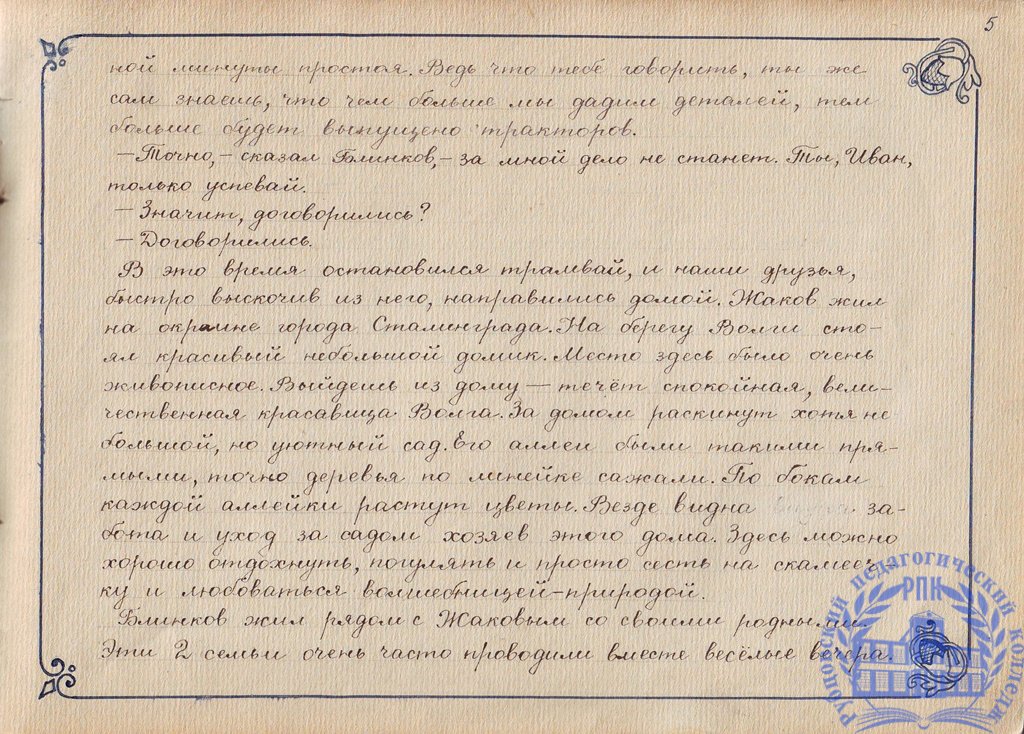 5
ной минуты простоя. Ведь что тебе говорить, ты же
сам знаешь, что чем больше мы дадим деталей, тем
больше будет выпущено тракторов.
— Точно, — сказал Блинков, — за мной дело не станет. Ты, Иван,
только успевай.
— Значит, договорились?
— Договорились.
В это время остановился трамвай, и наши друзья,
быстро выскочив из него, направились домой. Жаков жил
на окраине города Сталинграда. На берегу Волги сто-
ял красивый небольшой домик. Место здесь было очень
живописное. Выйдешь из дому — течёт спокойная, вели-
чественная красавица Волга. За домом раскинут хотя не
большой, но уютный сад. Его аллеи были такими пря-
мыми, точно деревья по линейке сажали. По бокам
каждой аллейки растут цветы. Везде видна за-
бота и уход за садом хозяев этого дома. Здесь можно
хорошо отдохнуть, погулять и просто сесть на скамееч-
ку и любоваться волшебницей-природой.
Блинков жил рядом с Жаковым со своими родными.
Эти 2 семьи очень часто проводили вместе весёлые вечера.
Руополький педагогический колледж
РПК